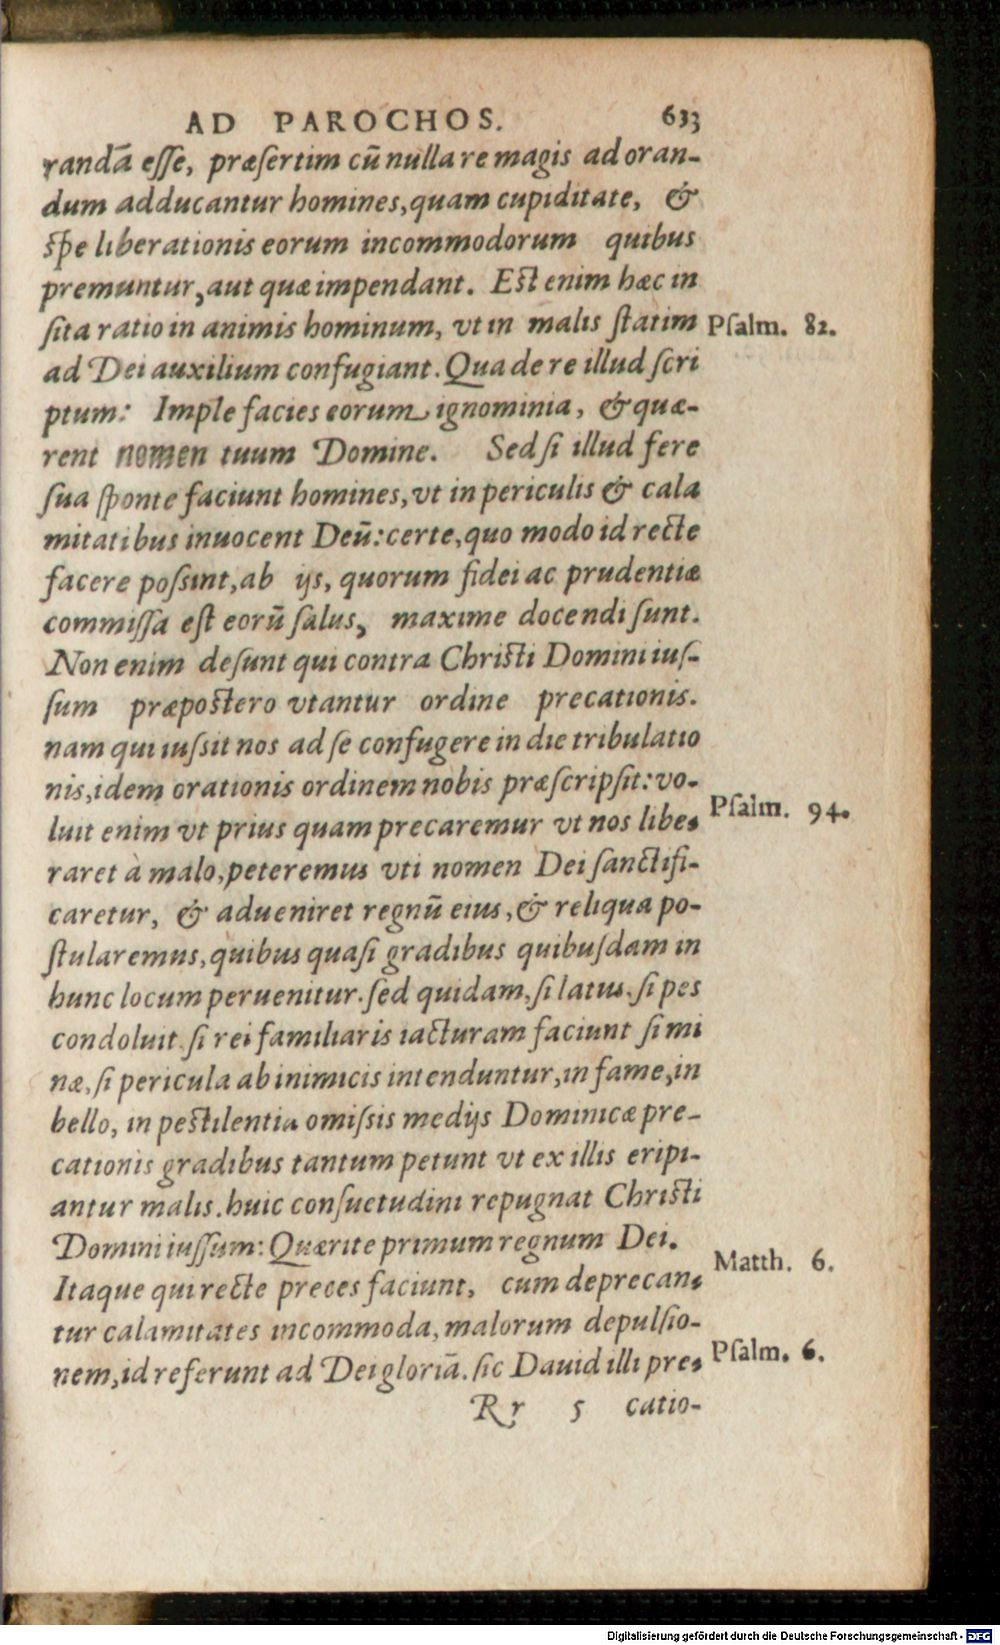 AD PAROCHOS. 633
randā eſſe, præſertim cū nulla re magis ad oran-
dum adducantur homines, quam cupiditate, &
ſpe liberationis eorum incommodorum quibus
premuntur, aut quæ impendant. Eſt enim hæc in
ſita ratio in animis hominum, vt in malis ſtatim Pſalm. 82.
ad Dei auxilium confugiant. Qua de re illud ſcri
ptum: Imple facies eorum ignominia, & quæ-
rent nomen tuum Domine. Sed ſi illud fere
ſua ſponte faciunt homines, vt in periculis & cala
mitatibus inuocent Deū: certe, quo modo id recte
facere poſsint, ab ijs, quorum fidei ac prudentiæ
commiſſa eſt eorū ſalus, maxime docendi ſunt.
Non enim deſunt qui contra Chriſti Domini iuſ-
ſum præpoſtero vtantur ordine precationis.
nam qui iuſsit nos ad ſe confugere in die tribulatio
nis, idem orationis ordinem nobis præſcripſit: vo-
luit enim vt prius quam precaremur vt nos libe- Pſalm. 94.
raret à malo, peteremus vti nomen Dei ſanctifi-
caretur, & adueniret regnū eius, & reliqua po-
ſtularemus, quibus quaſi gradibus quibuſdam in
hunc locum peruenitur. ſed quidam, ſi latus, ſi pes
condoluit, ſi rei familiaris iacturam faciunt ſi mi
næ, ſi pericula ab inimicis intenduntur, in fame, in
bello, in peſtilentia omiſsis medijs Dominicæ pre-
cationis gradibus tantum petunt vt ex illis eripi-
antur malis. huic conſuetudini repugnat Chriſti
Domini iuſſum: Quærite primum regnum Dei.
Itaque qui recte preces faciunt, cum deprecan- Matth. 6.
tur calamitates incommoda, malorum depulſio-
nem, id referunt ad Dei gloriā. ſic Dauid illi pre- Pſalm. 6.
Rr 5 catio-
Digitalisierung gefördert durch die Deutsche Forschungsgemeinschaft - DFG